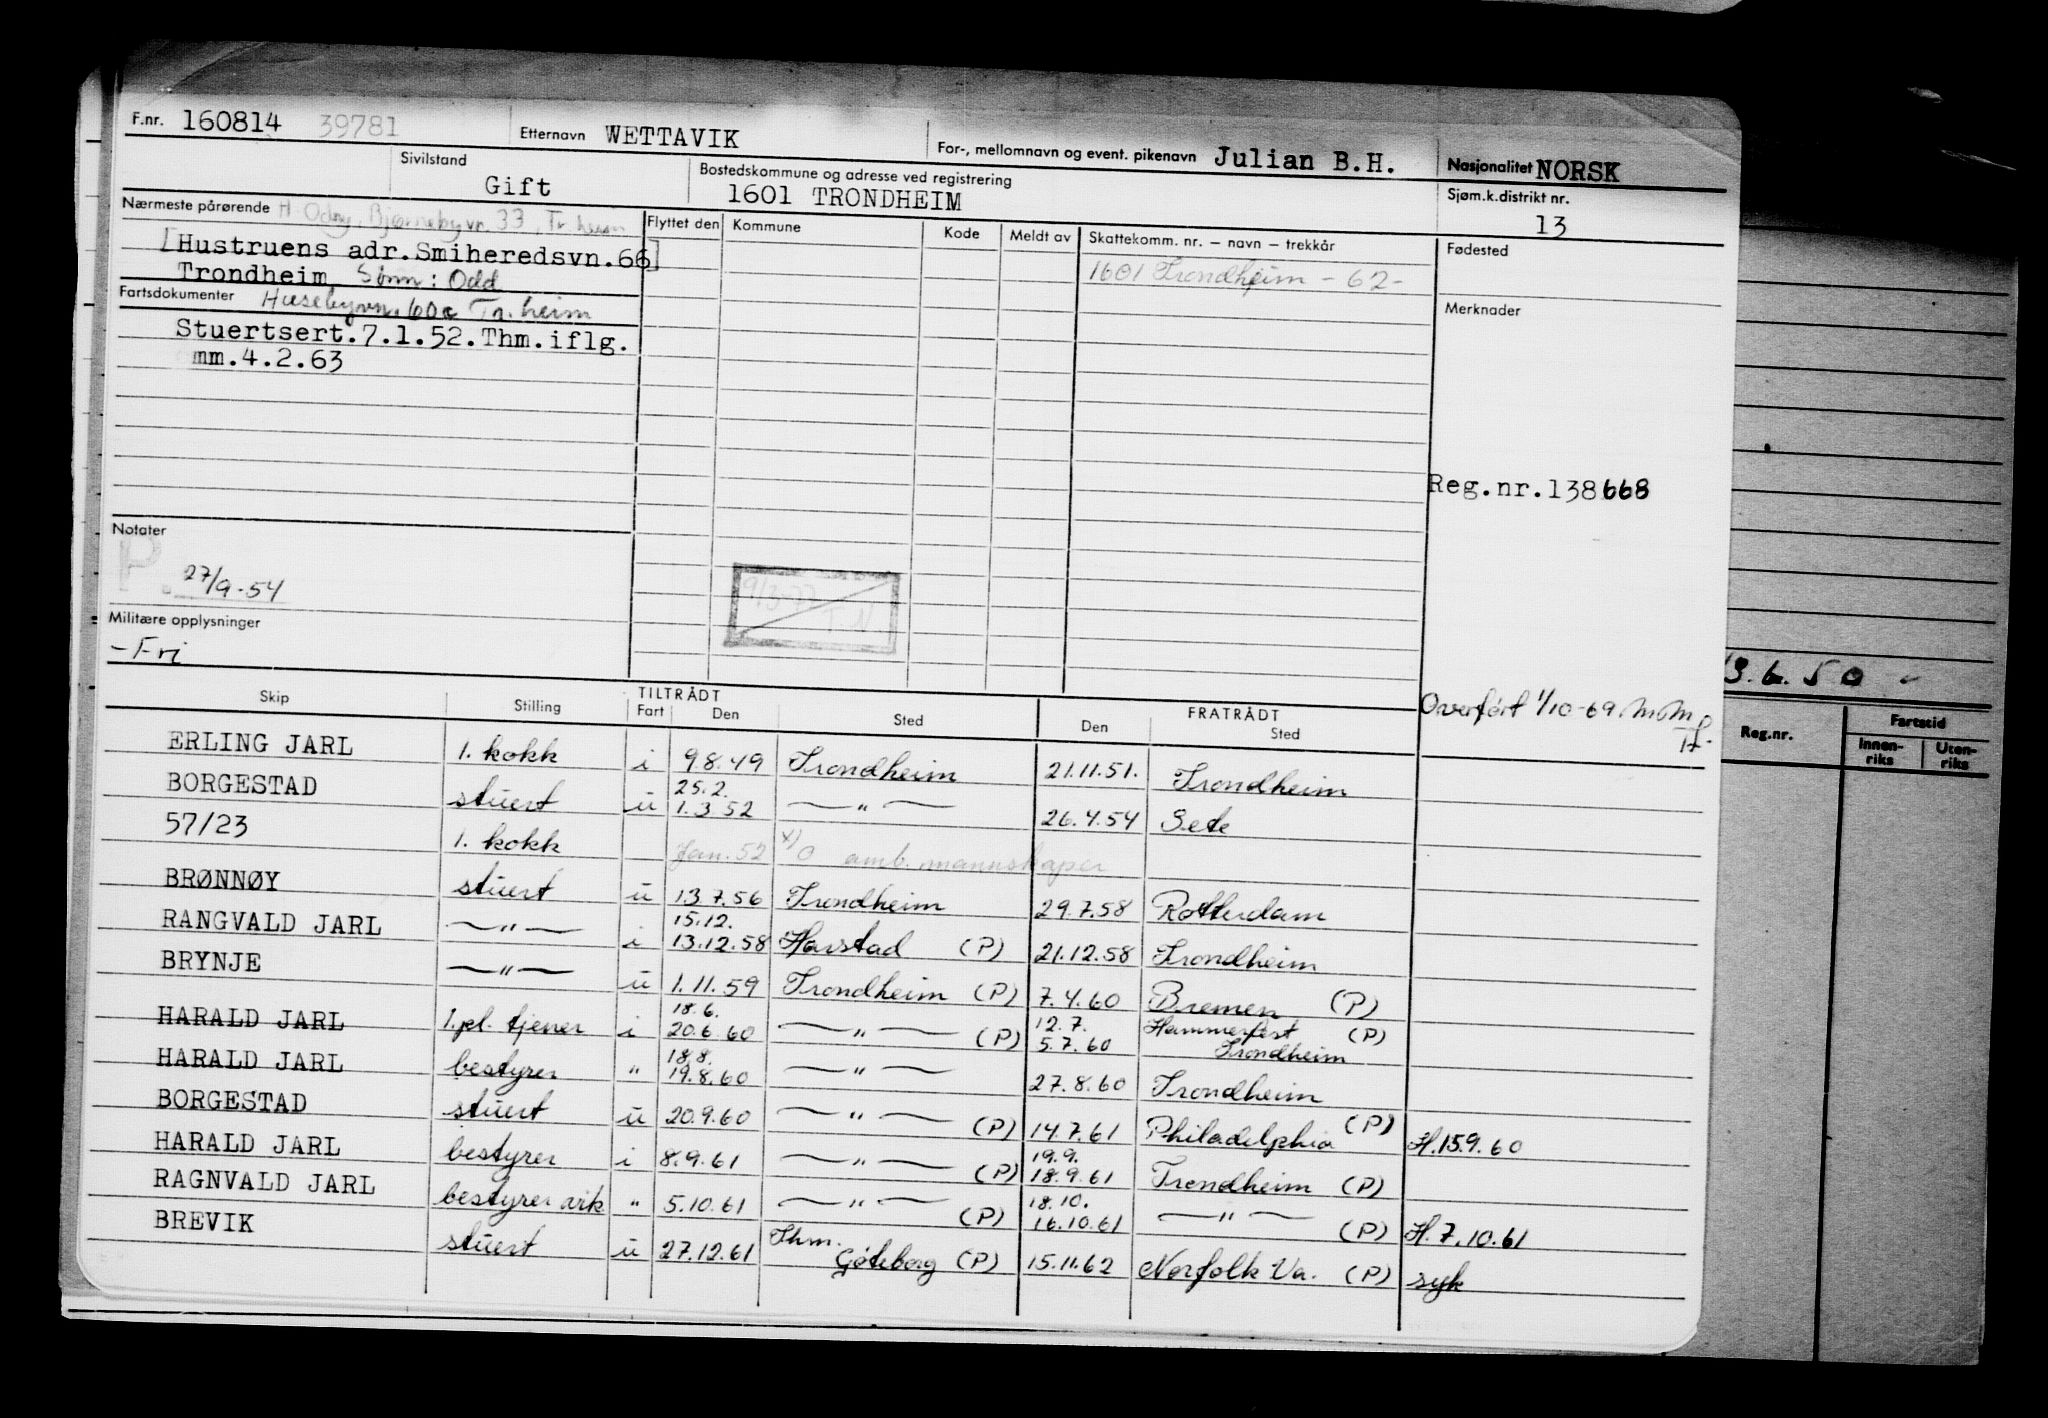 F.nr. 160814 39781 Etternavn WETTAVIK For-, mellomnavn og event. pikenavn Julian B.H. Nasjonalitet NORSK
Sivilstand Gift Bostedskommune og adresse ved registrering 1601 TRONDHEIM Sjøm.k.distrikt nr. 13
Nærmeste pårørende Bjørnebyvn. 33, Tr.heim Flyttet den Kommune Kode Meldt av Skattekomm. nr. – navn – trekkår Fødested
[Hustruens adr.Smiheredsvn.66] 1601 Trondheim - 62 -
Trondheim Sønn: Odd
Husebyvn. 60c Tr.heim
Fartsdokumenter Merknader
Stuertsert.7.1.52.Thm.iflg.
mm.4.2.63
Reg.nr.138668
Notater
P. 27/9-54
9/3-77 T.N
Militære opplysninger
-Fri
3.6.50 -
Overført 1/10-69 M.M.
Skip Stilling TILTRÅDT Fart Den Sted FRATRÅDT Den Sted
Reg.nr. Fartstid Innenriks Utenriks
ERLING JARL 1. kokk i 9.8.49 Trondheim 21.11.51. Trondheim
BORGESTAD stuert u 25.2. 1.3.52 —"— 26.4.54 Sete
57/23 1. kokk Jan. 52 x) o amb. mannskaper
BRØNNØY stuert u 13.7.56 Trondheim 29.7.58 Rotterdam
RANGVALD JARL —"— i 15.12. 13.12.58 Harstad (P) 21.12.58 Trondheim
BRYNJE —"— u 1.11.59 Trondheim (P) 7.4.60 Bremen (P)
HARALD JARL 1.pl. tjener i 18.6. 20.6.60 —"— (P) 12.7. 5.7.60 Hammerfest (P) Trondheim
HARALD JARL bestyrer " 18.8. 19.8.60 —"— 27.8.60 Trondheim
BORGESTAD stuert u 20.9.60 —"— (P) 14.7.61 Philadelphia (P) H.15.9.60
HARALD JARL bestyrer i 8.9.61 —"— (P) 19.9. 18.9.61 Trondheim (P)
RAGNVALD JARL bestyrer ask " 5.10.61 —"— (P) 18.10. 16.10.61 —"— (P) H.7.10.61
BREVIK stuert u 27.12.61 Thm. Göteborg (P) 15.11.62 Norfolk Va. (P) syk